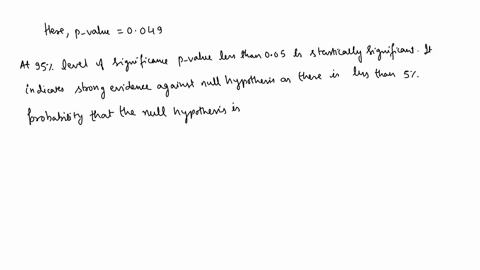 Here, p-value = 0.049
At 95% level of significance p-value less than 0.05 is stastically significant. It
indicates strong evidence against null hypothesis as there is less than 5%
probability that the null hypothesis is